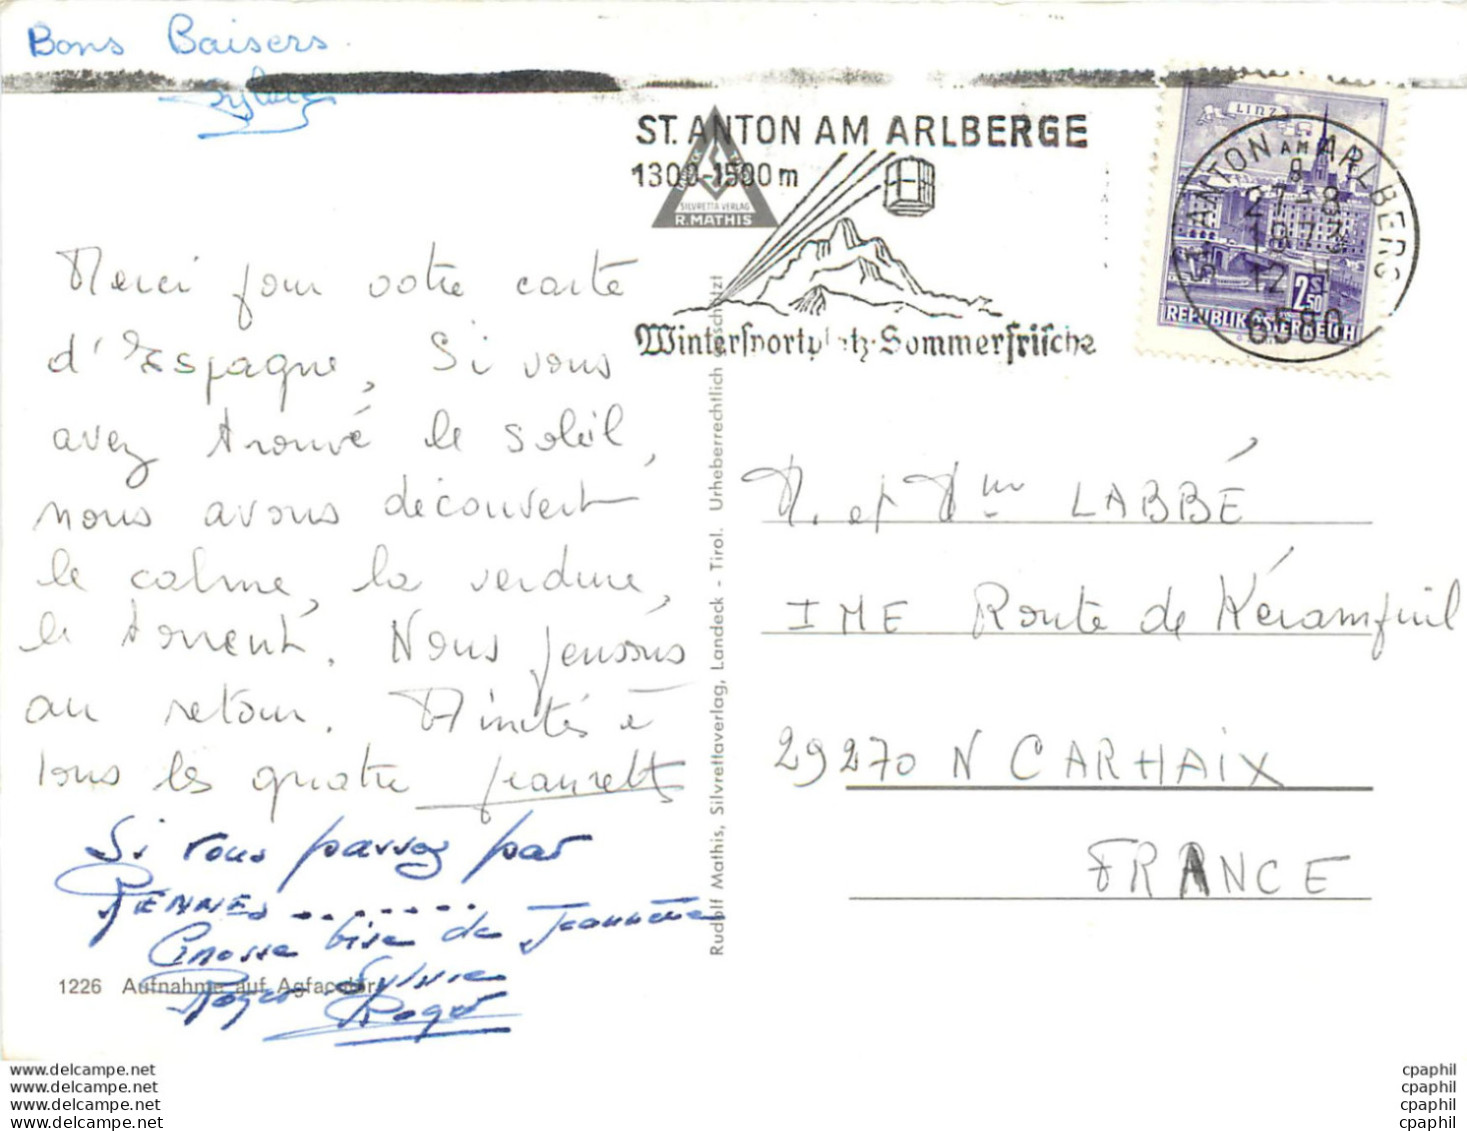 Bons Baisers
Sylvie
ST. ANTON AM ARLBERGE
1300-1500 m
Wintersportplatz-Sommerfrische
SILVRETTA VERLAG
R. MATHIS
LINZ
ST. ANTON AM ARLBERG
8
27.-8.
1973
12
6580
2.50
REPUBLIK ÖSTERREICH
Merci pour votre carte
d'Espagne, Si vous
avez trouvé le soleil,
nous avons découvert
le calme, la verdure,
le torrent. Nous pensons
au retour. Amitiés à
tous les quatre Jeannette
Si vous passez par
RENNES ........
Grosse bise de Jeannette
Roger Sylvie
Roger
M. et Mme LABBÉ
IME Route de Kérampuil
29270 N CARHAIX
FRANCE
Rudolf Mathis, Silvrettaverlag, Landeck - Tirol. Urheberrechtlich geschützt
1226 Aufnahme auf Agfacolor
www.delcampe.net
www.delcampe.net
www.delcampe.net
www.delcampe.net
cpaphil
cpaphil
cpaphil
cpaphil